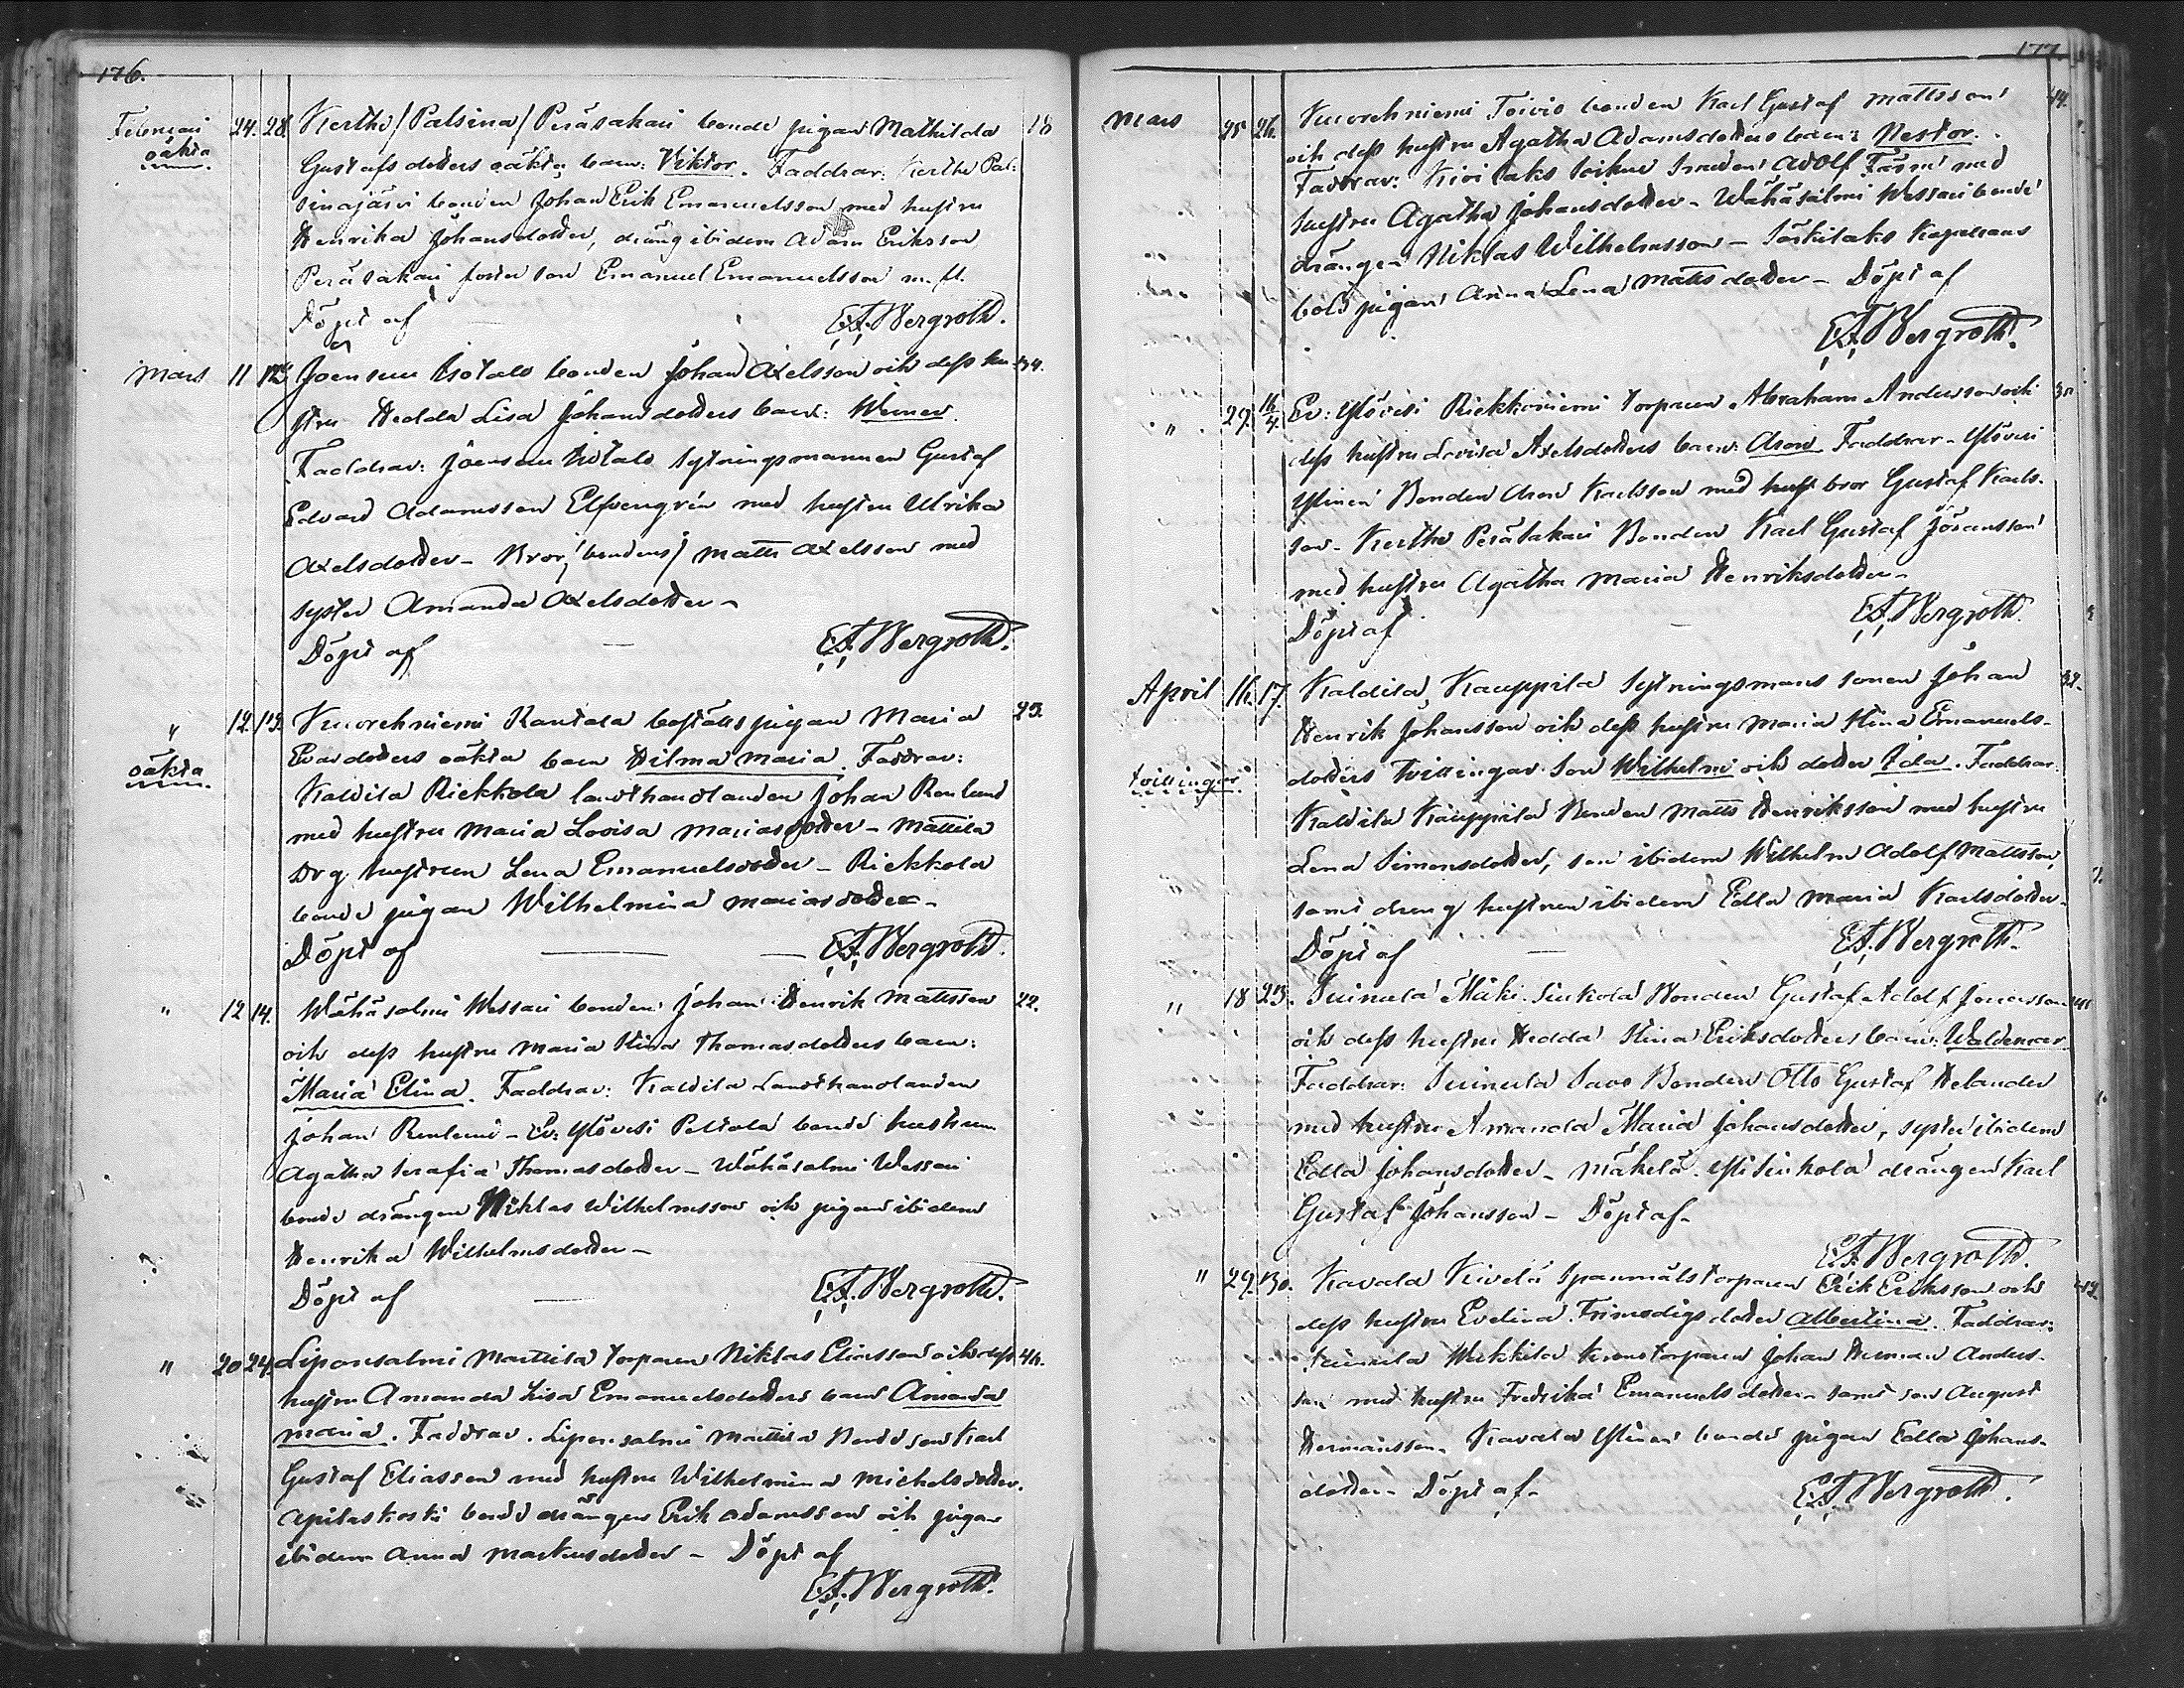 176.
Februari 24. 28. Kerthe /Palsina/ Peräsakari bonde pigan Mathilda 18
oäkta Gustafsdotters oäkta barn: Viktor. Faddrar: Kerthe Pal-
sinajärvi bonden Johan Erik Emanuelsson med hustru
Henrika Johansdotter, dräng ibidem Adam Eriksson
Peräsakari foster son Emanuel Emanuelsson m. fl.
Döpt af E.F. Bergroth.
Mars 11 12 Joensuu Isotalo bonden Johan Axelsson och dess hu- 34.
stru Hedda Lisa Johansdotters barn: Werner.
Faddrar: Joensuu Isotalo Sytningsmannen Gustaf
Edvard Adamsson Elfvengrén med hustru Ulrika
Axelsdotter – Bror /bondens/ Matts Axelsson med
syster Amanda Axelsdotter –
Döpt af — E.F. Bergroth.
" 12. 13. Kuorehniemi Rantala bostäls pigan Maria 23.
Evasdotters oäkta barn Hilma Maria. Faddrar:
oäkta Kaldila Riekkola landthandlanden Johan Renlund
med hustru Maria Lovisa Mariasdotter – Mattila
Drg hustrun Lena Emanuelsdotter – Riekkola
bonde pigan Wilhelmina Mariasdotter –
Döpt af — E.F. Bergroth.
" 12 14. Wähäsalmi Wessari bonden Johan Henrik Mattsson 22.
och dess hustru Maria Stina Thomasdotters barn:
Maria Elina. Faddrar: Kaldila Landthandlanden
Johan Renlund – Ev: Ylövesi Peltola bonde hustrun
Agatha Serafia Thomasdotter – Wähäsalmi Wessari
bonde drängen Niklas Wilhelmsson och pigan ibidem
Henrika Wilhelmsdotter –
Döpt af — E.F. Bergroth.
" 20 24. Liponsalmi Mattila torparen Niklas Eliasson och dess 46.
hustru Amanda Lisa Emanuelsdotters barn Amanda
Maria. Faddrar. Liponsalmi Mattila Bonde son Karl
Gustaf Eliasson med hustru Wilhelmina Michelsdotter.
Apilaskoski bonde drängen Erik Adamsson och pigan
ibidem Anna Markusdotter – Döpt af
E.F. Bergroth.
177.
Mars 25 26. Kuorehniemi Toivio bonden Karl Gustaf Mattsson 44.
och dess hustru Agatha Adamsdotters barn: Nestor.
Faddrar: Adolf med
hustru Agatha Johansdotter – Wähäsalmi Wessari bonde
drängen Niklas Wilhelmsson – Kapellans
bols pigan Anna Lena Mattsdotter – Döpt af
E.F. Bergroth.
" 29. 16/4. Ev: Ylövesi Riekkoniemi torparen Abraham Andersson och 35
dess hustru Lovisa Axelsdotters barn: Aron Faddrar – Ylövesi
Ylinen Bonden Aron Karlsson med bror Gustaf Karls-
son – Kerthe Peräsakari Bonden Karl Gustaf Göransson
med hustru Agatha Maria Henriksdotter –
Döpt af E.F. Bergroth.
April 16. 17. Kaldila, Kauppila Sytningsmans sonen Johan 32.
Henrik Johansson och dess hustru Maria Stina Emanuels-
tvillingar dotters Tvillingar. Son Wilhelm och dotter Ida. Faddrar
Kaldila Kauppila Bonden Matts Henriksson med hustru
Lena Simonsdotter, son ibidem Wilhelm Adolf Mattsson,
samt dreng hustrun ibidem Edla Maria Karlsdotter –
Döpt af — E.F. Bergroth.
" 18 23. Suinula Mäki-Sinkola Bonden Gustaf Adolf Jonasson 41
och dess hustru Hedda Stina Eriksdotters barn: Waldemar
Faddrar: Suinula Savo Bonden Otto Gustaf Helander
med hustru Amanda Maria Johansdotter, syster ibidem
Edla Johansdotter – Mäkelä – Yli Sinkola drängen Karl
Gustaf Johansson – Döpt af –
E.F. Bergroth.
" 29. 30. Kavala Kivelä Spanmålstorparen Erik Eriksson och 42.
dess hustru Evelina Frimodigsdotter Albertina. Faddrar:
Suinula Wekkila Kronotorparen Johan Herman Anders-
son med hustru Fredrika Emanuelsdotter – samt son August
Hermansson. Kavala Ylinen bonde pigan Edla Johans-
dotter – Döpt af – E.F. Bergroth.